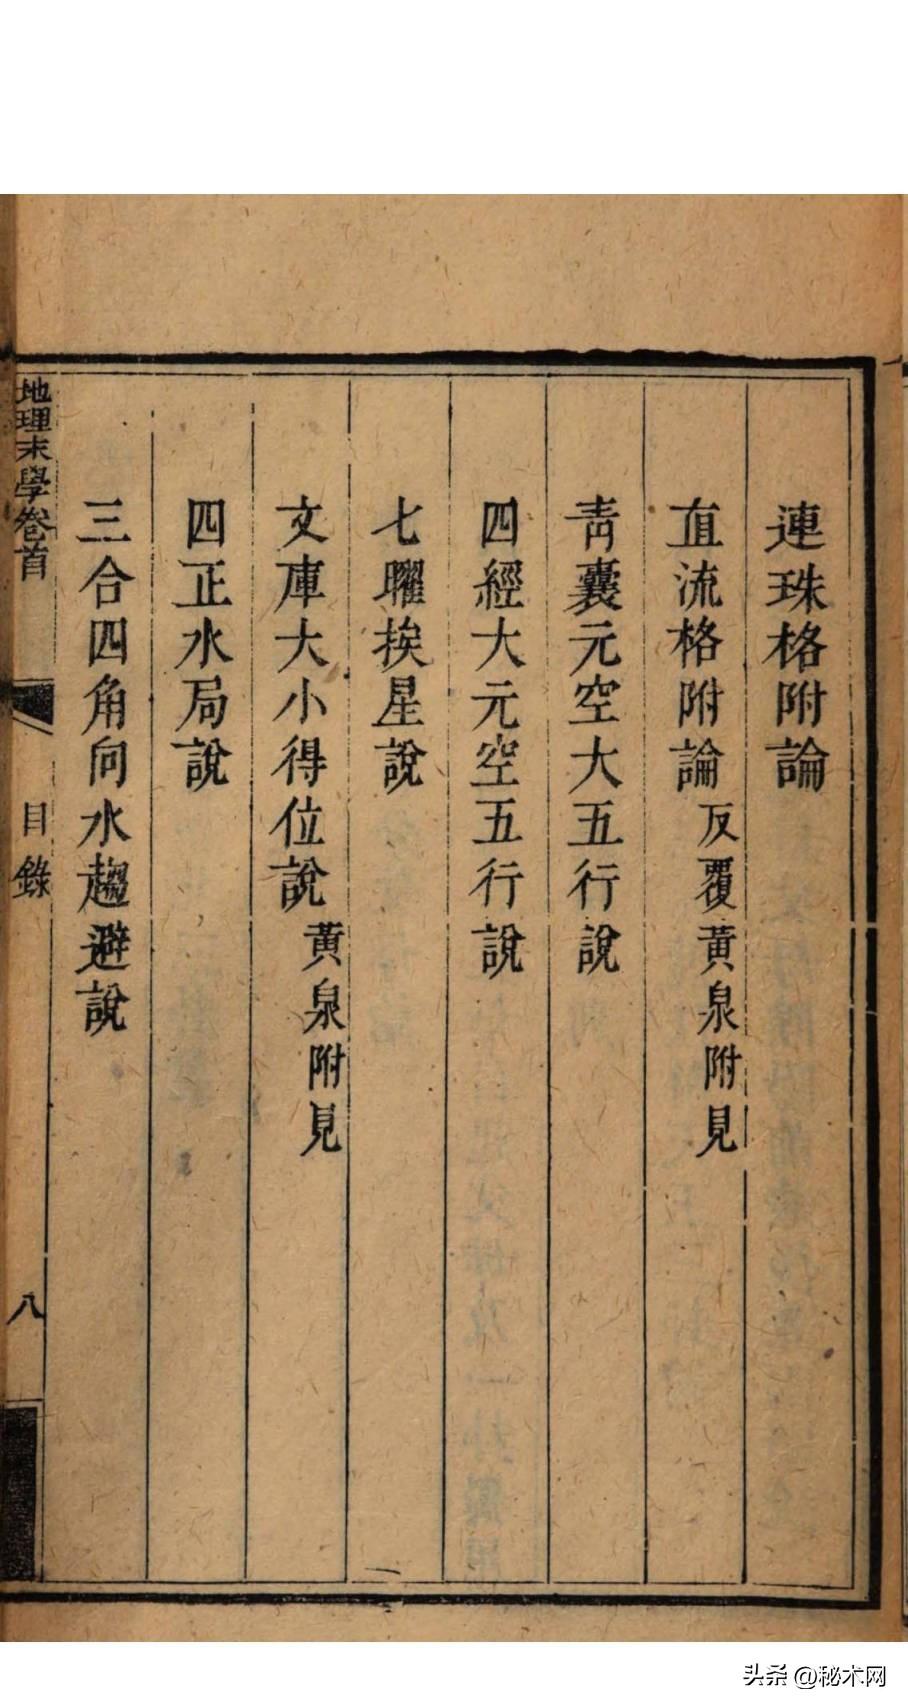 連珠格附論
直流格附論 反覆黃泉附見
青囊元空大五行說
四經大元空五行說
七曜挨星說
文庫大小得位說 黃泉附見
四正水局說
三合四角向水趨避說
地理末學卷首
目錄
八
头条 @秘术网